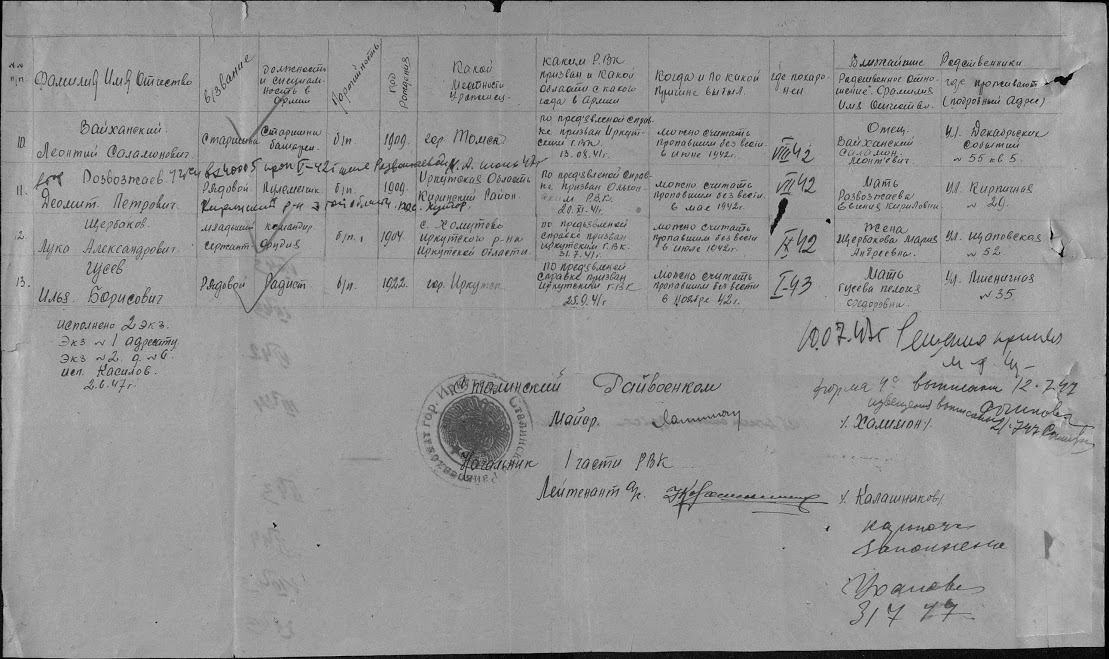 №№ п/п. Фамилия Имя Отчество в/звание Должность и специальность в Армии Партийность Год Рождения Какой Местности Уроженец. Каким Р.В.К призван и Какой Области с какого года в Армии Когда и по какой причине выбыл. где похаронен Ближайшие Родственники
Родственное Отношение. Фамилия Имя Отчество. где проживают (подробный Адрес)
10. Вайханский
Леонтий Саламонович. Старшина Старшина батареи. б/п. 1909. гор Томск по предъявленой справке призван Иркутским Г.В.К. 13.08.41г. можно считать пропавшим без вести в июне 1942г. VIII 42 Отец. Вайханский Саламон Леонтьевич. ул. Декабрьских Событий № 55 кв 5.
11. Розвозжаев
Деомит Петрович. Рядовой Пулеметчик б/п. 1909. Иркутская Область Киринский Район. По предъявленой справке Призван Р.В.К. можно считать пропавшим без вести в мае 1942г. VII 42 Мать Развозжаева Кириловна ул. Кирпичная № 29.
12. Щербаков
Лука Александрович. младший сержант командир орудия б/п. 1904. с. Хомутово Иркутского р-на Иркутской Области. по предъявленой справке призван Иркутским Г.В.К. 31.7.41г. можно считать пропавшим без вести в июле 1942г. IX 42 Жена Щербакова Мария Андреевна ул. Щаповская № 52
13. Гусев
Илья Борисович Рядовой Радист б/п. 1922. гор. Иркутск ПО предъявленой справке призван Иркутским Г.В.К 25.9.41г можно считать пропавшим без вести в Ноябре 42г. I-43 Мать Гусева Пелогия Федоровна. ул. Пшеничная № 35
исполнено 2 экз.
экз № 1 адресату
экз № 2. д. № 6.
исп. Касилов.
2.6.47г.
10.07.47г
12-7-47
Сталинский Райвоенком
Майор. /. Халимон /.
Начальник 1 части РВК
Лейтенант /. Калашников /
заполнена
31 7 47